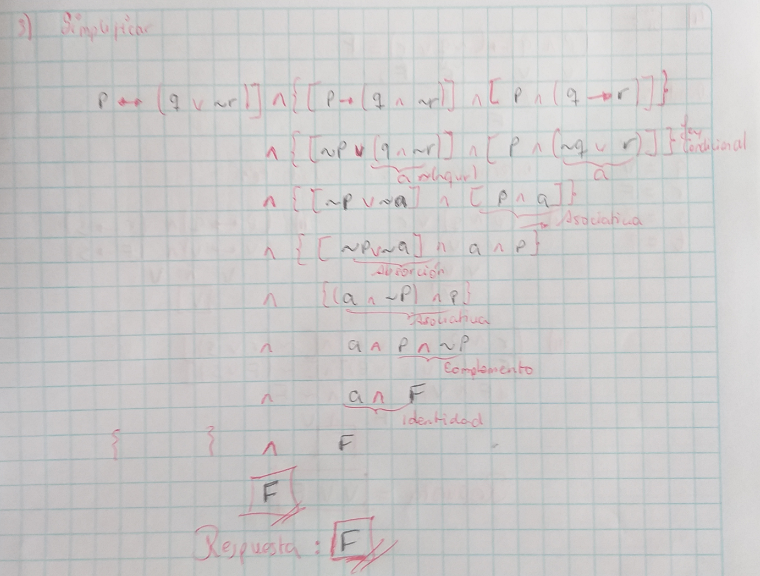 3) Simplificar
P ↔ (q ∨ ~r)] ∧ { [ P → (q ∧ ~r)] ∧ [ P ∧ (q → r)] ] }
∧ { [ ~P ∨ (q ∧ ~r)] ∧ [ P ∧ (~q ∨ r)] ] } Ley Condicional
a ~(~q∨r) a
∧ { [ ~P ∨ ~a] ∧ [ P ∧ a] }
Asociativa
∧ { [ ~P ∨ ~a] ∧ a ∧ P }
Absorción
∧ {(a ∧ ~P) ∧ P}
Asociativa
∧ a ∧ P ∧ ~P
Complemento
∧ a ∧ F
identidad
{ } ∧ F
F
Respuesta : F